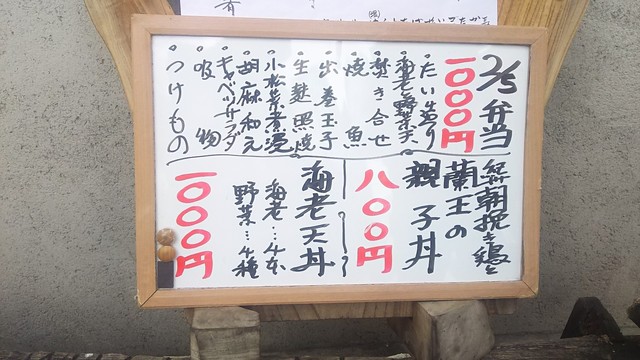 2/5弁当
一〇〇〇円
・たい造り
・海老と野菜天
・焚き合せ
・焼魚
・出巻玉子
・生麩照焼
・小松菜煮浸
・胡麻和え
・キャベツサラダ
・吸物
・つけもの
朝挽き鶏と
蘭王の
親子丼
八〇〇円
海老天丼
海老…4本
野菜…4種
一〇〇〇円